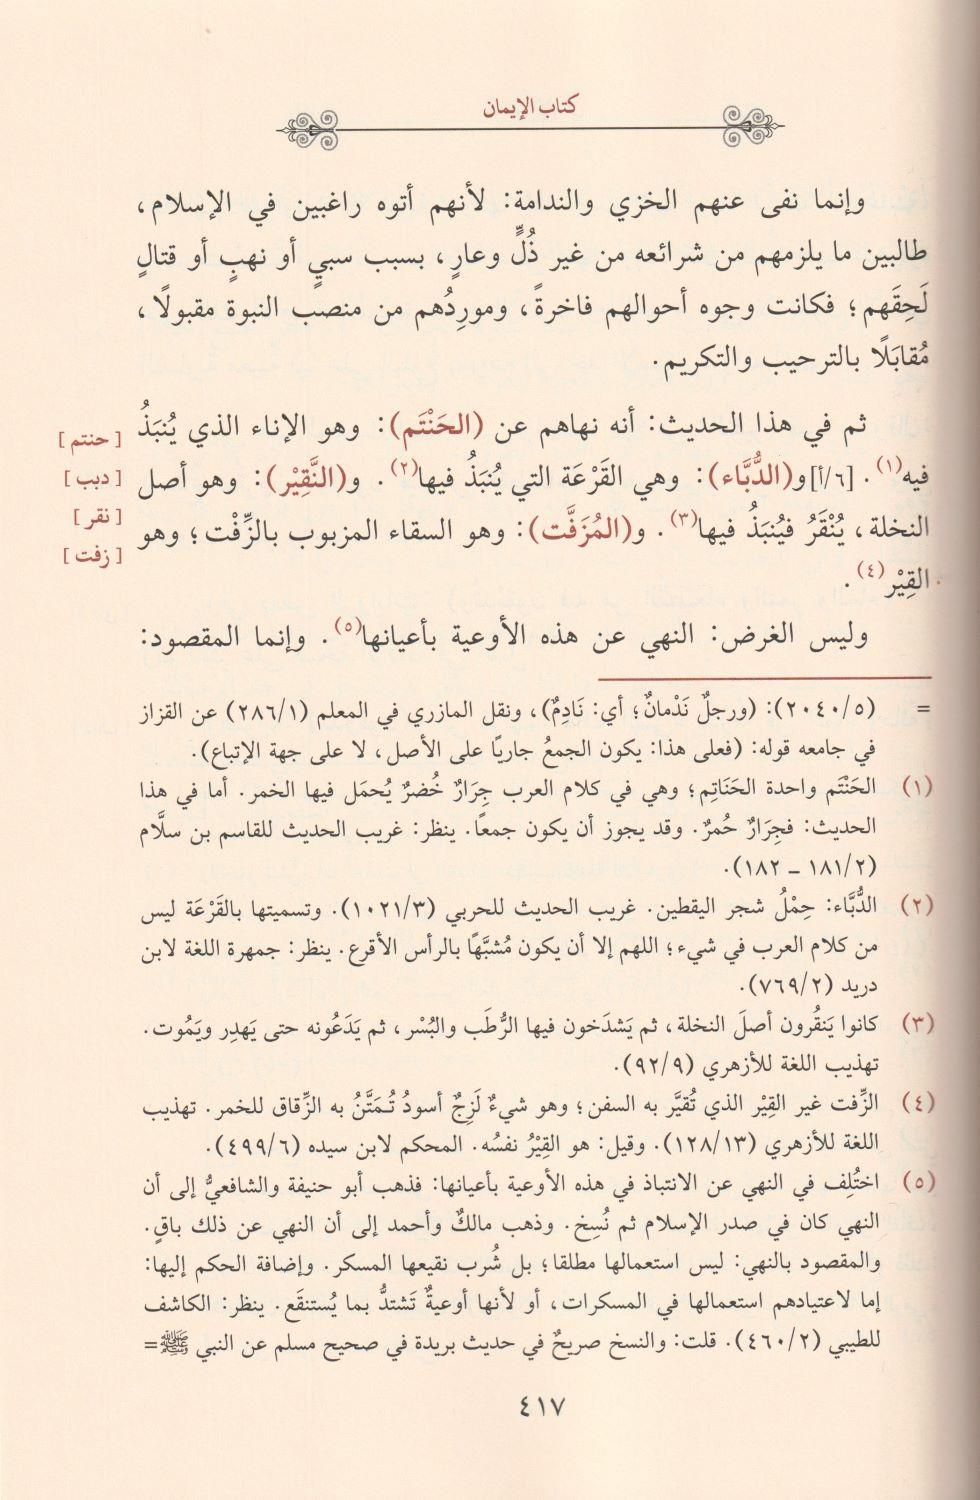 كتاب الإيمان
وإنما نفى عنهم الخزي والندامة: لأنهم أتوه راغبين في الإسلام،
طالبين ما يلزمهم من شرائعه من غير ذُلٍّ وعارٍ، بسبب سبيٍ أو نهبٍ أو قتالٍ
لَحِقَهم؛ فكانت وجوه أحوالهم فاخرةً، وموردُهم من منصب النبوة مقبولًا،
مُقابَلًا بالترحيب والتكريم.
ثم في هذا الحديث: أنه نهاهم عن (الحَنْتَم): وهو الإناء الذي يُنبَذُ
[حنتم]
فيه(١). [٦/أ] و(الدُّبَّاء): وهي القَرْعَة التي يُنبَذُ فيها(٢). و(النَّقِيْر): وهو أصل
[دبب]
النخلة، يُنْقَرُ فيُنبَذُ فيها(٣). و(المُزَفَّت): وهو السقاء المزبوب بالزِّفْت؛ وهو
[نقر]
[زفت]
القِيْر(٤).
وليس الغرض: النهي عن هذه الأوعية بأعيانها(٥). وإنما المقصود:
= (٢٠٤٠/٥): (ورجلٌ نَدْمانٌ؛ أي: نَادِمٌ)، ونقل المازري في المعلم (٢٨٦/١) عن القزاز
في جامعه قوله: (فعلى هذا: يكون الجمعُ جاريًا على الأصل، لا على جهة الإتباع).
(١) الحَنْتَم واحدة الحَنَاتِم؛ وهي في كلام العرب جِرَارٌ خُضرٌ يُحمَل فيها الخمر. أما في هذا
الحديث: فجِرَارٌ حُمرٌ. وقد يجوز أن يكون جمعًا. ينظر: غريب الحديث للقاسم بن سلَّام
(١٨١/٢ ـ ١٨٢).
(٢) الدُّبَّاء: حِمْلُ شجر اليقطين. غريب الحديث للحربي (١٠٢١/٣). وتسميتها بالقَرْعَة ليس
من كلام العرب في شيء؛ اللهم إلا أن يكون مُشبَّهًا بالرأس الأقرع. ينظر: جمهرة اللغة لابن
دريد (٧٦٩/٢).
(٣) كانوا يَنقُرون أصلَ النخلة، ثم يَشدَخون فيها الرُّطَب والبُسْر، ثم يَدَعُونه حتى يَهدِر ويَمُوت.
تهذيب اللغة للأزهري (٩٢/٩).
(٤) الزِّفت غير القِيْر الذي تُقيَّر به السفن؛ وهو شيءٌ لَزِجٌ أسودُ تُمَتَّنُ به الزِّقاق للخمر. تهذيب
اللغة للأزهري (١٢٨/١٣). وقيل: هو القِيْرُ نفسُه. المحكم لابن سيده (٤٩٩/٦).
(٥) اختُلِف في النهي عن الانتباذ في هذه الأوعية بأعيانها: فذهب أبو حنيفة والشافعيُّ إلى أن
النهي كان في صدر الإسلام ثم نُسِخ. وذهب مالكٌ وأحمد إلى أن النهي عن ذلك باقٍ.
والمقصود بالنهي: ليس استعمالها مطلقا؛ بل شُرب نقيعها المسكر. وإضافة الحكم إليها:
إما لاعتيادهم استعمالها في المسكرات، أو لأنها أوعيةٌ تَشتدُّ بما يُستنقَع. ينظر: الكاشف
للطيبي (٤٦٠/٢). قلت: والنسخ صريحٌ في حديث بريدة في صحيح مسلم عن النبي ﷺ=
٤١٧